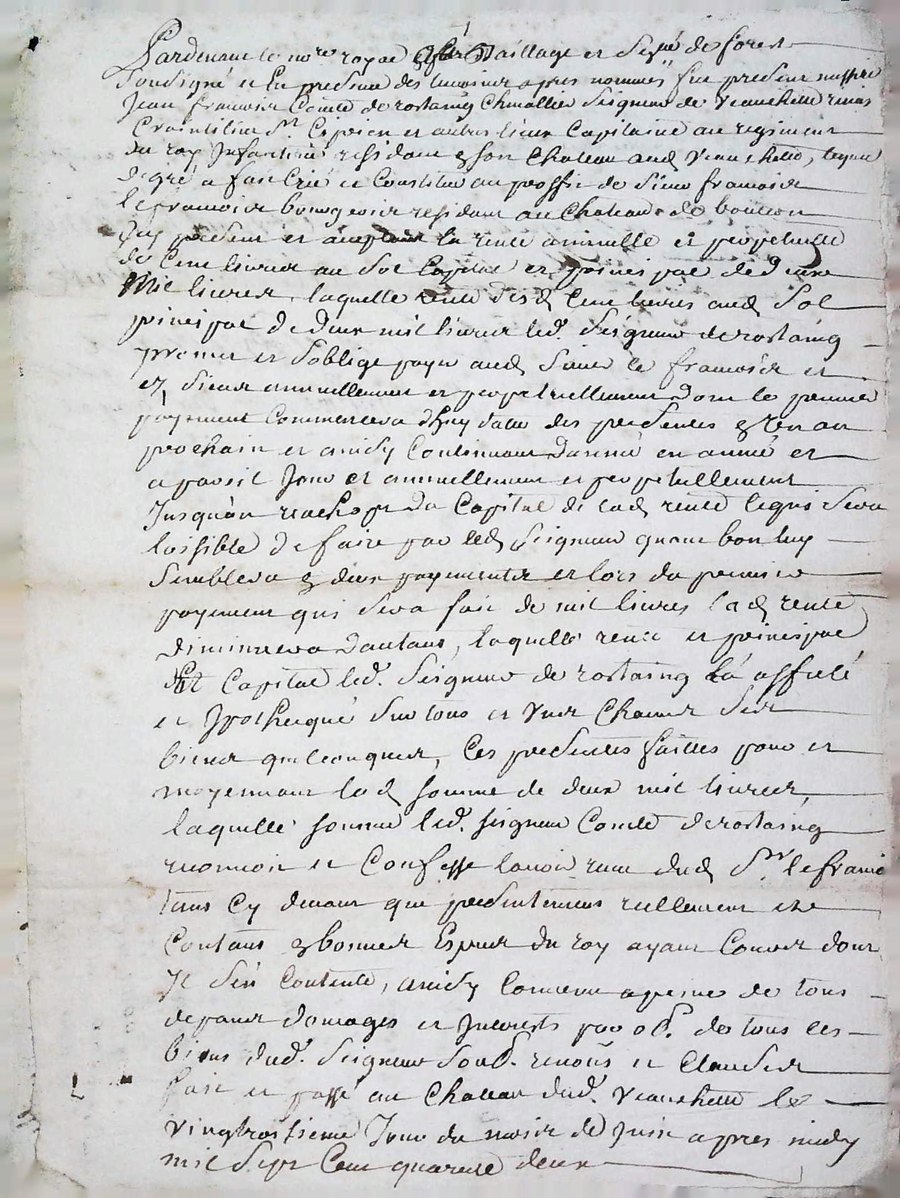 Pardevant le no.re royal Baillage et Seg.né de forest
Soussigné et En presence des temoins apres nommés fut present messire
Jean francois Comte de rostaing Chevallier Seigneur de veauchette rivas
Craintilieu St. Ciprien et autres lieux Capitaine au regiment
du roy Infanterie residant en son Chateau aud veauchette, lequel
de gré a fait Créé et Constitué au proffit de Sieur francois
le francois bourgeois residant au Chateau de bouteon
Icy present et acceptant la rente annuelle et perpetuelle
de Cent livres au Sol Capital et principal de Deux
Mil livres, laquelle rente desd Cent livres aud Sol
principal de deux mil livres led. Seigneur de rostaing
promet et Soblige payer aud Sieur le francois et
es Siens annuellement et perpetuellement Dont le premier
payement Commencera dhuy datte des presentes en un an
prochain et ainsy Continuera Dannée en année et
a pareil Jour et annuellement et perpetuellement
Jusquau rachapt du Capital de lad rente lequel Sera
loisible de faire par led Seigneur quand bon luy
Semblera en deux payements et lors du premier
payement qui Sera fait de mil livres lad rente
diminuera dautant, laquelle rente et principal
Capital led. Seigneur de rostaing a affecté
et Ipothequé Sur tous et Uns Chacuns Ses
biens quelconques, Ces presentes faittes pour et
moyennant lad somme de deux mil livres,
laquelle somme led. seigneur Comte de rostaing
reconnoit et Confesse lavoir reçue dud Sr. le francois
tant Cy devant que presentement reellement et
Contant en bonnes Especes du roy ayant Cours dont
Il Sen Contente, ainsy Convenu a peine de tous
depans domages et Interests par ob. de tous les
biens dud. Seigneur Soub. renon et Clauses
fait et passé au Chateau dud. veauchette le
vingtroisieme Jour du mois de Juin apres midy
mil Sept Cent quarente deux